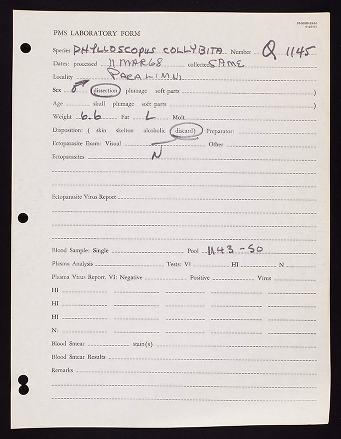 PMS LABORATORY FORM
Species PHYLLOSCOPUS COLLYBITA Number Q 1145
Dates: processed 11 MAR 68 collected SAME
Locality PARALIMNI
Sex ♂ (dissection) plumage soft parts )
Age skull plumage soft parts )
Weight 6.6 Fat L Molt
Disposition: ( skin skelton alcoholic discard) Preparator:
Ectoparasite Exam: Visual Other
Ectoparasites N
Ectoparasite Virus Report
Blood Sample: Single Pool 1143-50
Plasma Analysis Tests: VI HI N
Plasma Virus Report. VI: Negative Positive Virus
HI
HI
HI
N:
Blood Smear stain(s)
Blood Smear Results
Remarks